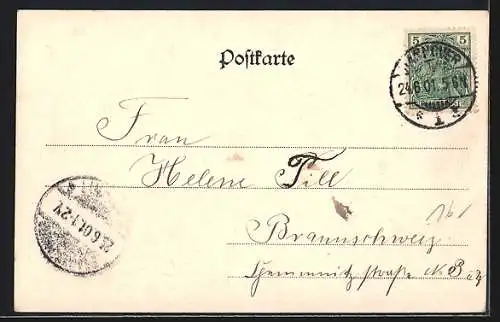 Postkarte
5 5
HANNOVER
24.6.01. 5-6N
* 1 *
Frau
Helene Till
Braunschweig
Chemnitz straße N. 3
161
25.6.01. 1-2V